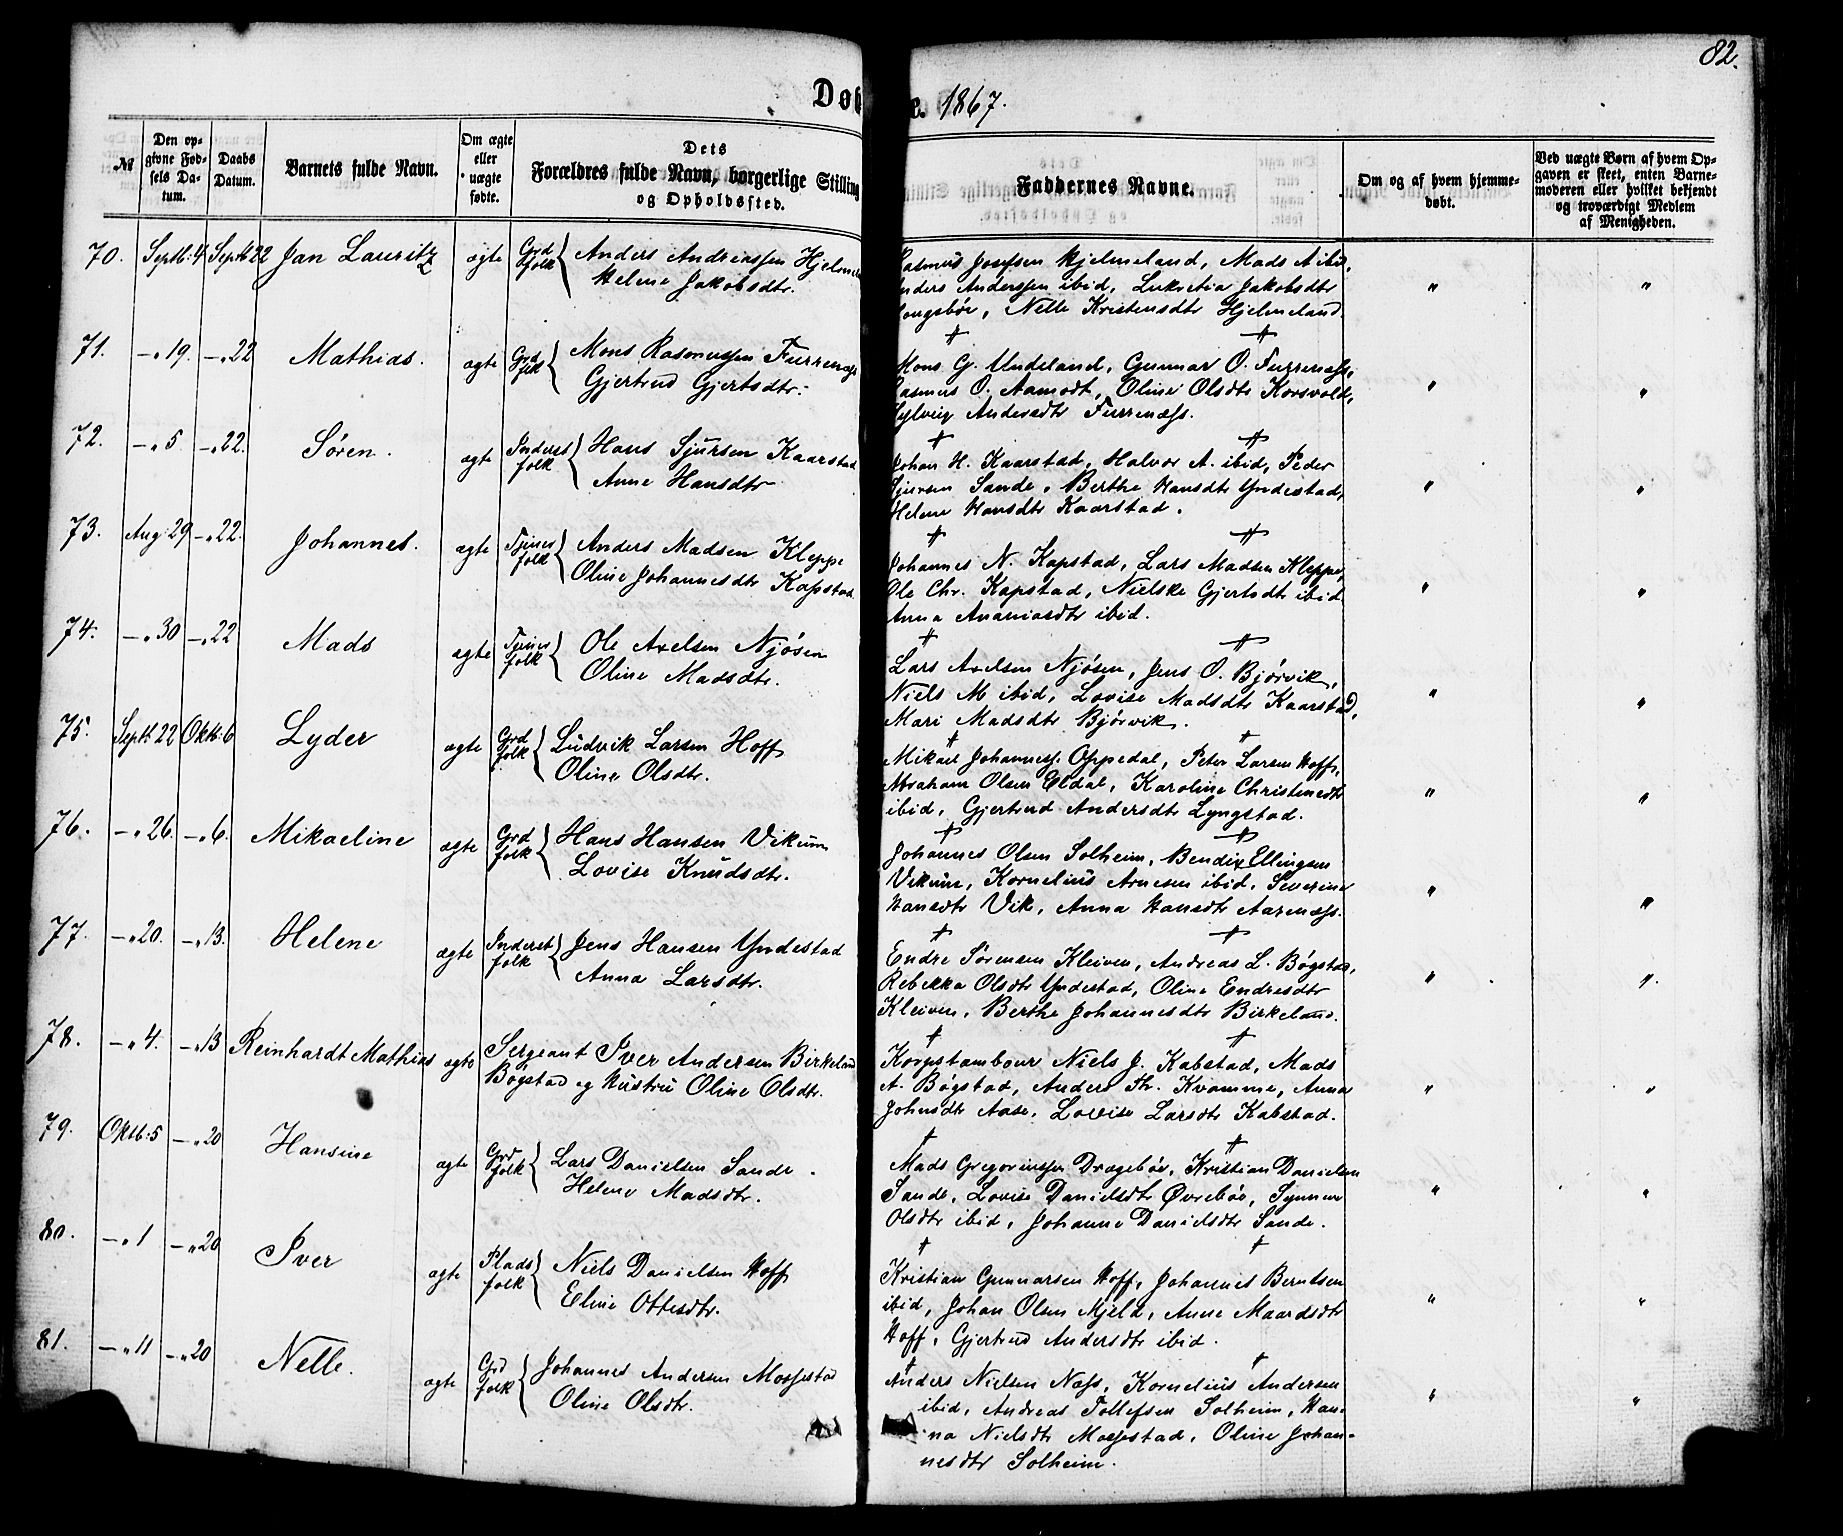 82.
Døb
e. 1867.
№
Den opgivne Fødsels Datum.
Daabs Datum.
Barnets fulde Navn.
Om ægte eller uægte fødte.
Dets Forældres fulde Navn, borgerlige Stilling og Opholdssted.
Faddernes Navne.
Om og af hvem hjemmedøbt.
Ved uægte Børn af hvem Opgaven er skeet, enten Barnemoderen eller hvilket bekjendt og troværdigt Medlem af Menigheden.
70. Septb: 4 Septb 22 Jan Lauritz ægte Grd folk { Anders Andreassen Hjelme
Helene Jakobsdtr.
Rasmus Josefsen Hjelmeland, Mads A ibid,
Anders Anderssen ibid, Lukretia Jakobsdtr
Nelle Kristensdtr Hjelmeland.
" "
71. — " 19. — " 22 Mathias. ægte Grd folk { Mons Rasmussen Furrenæss
Gjertrud Gjertsdtr.
Mons G. Undeland, Gunnar O. Furrenæss,
Rasmus O. Aamodt, Oline Olsdtr Korsvold,
Andersdtr Furrenæss.
" "
72. — " 5 — " 22. Søren. ægte Inderst folk { Hans Sjursen Kaarstad
Anne Hansdtr
Johan H. Kaarstad, Halvor A. ibid, Peder
Sjursen Sande, Berthe Hansdtr Yndestad,
Helene Hansdtr Kaarstad.
" "
73. Aug: 29 — " 22. Johannes. ægte Tjener folk { Anders Madsen Kleppe
Oline Johannesdtr Kapstad.
Johannes N. Kapstad, Lars Madsen Kleppe,
Ole Chr. Kapstad, Nielske Gjertsdtr ibid
Anna Ananiasdtr ibid.
" "
74. — " 30 — " 22 Mads ægte Tjener folk { Ole Axelsen Njøsen
Oline Madsdtr.
Lars Axelsen Njøsen, Jens O. Bjørvik,
Niels M ibid, Lovise Madsdtr Kaarstad,
Mari Madsdtr Bjørvik.
" "
75. Septb: 22 Oktb: 6 Lyder ægte Grd folk { Ludvik Larsen Hoff
Oline Olsdtr.
Mikael Johanness. Oppedal, Peter Larsen Hoff,
Abraham Olsen Eldal, Karoline Christensdtr
ibid, Gjertrud Andersdtr Lyngstad.
" "
76. — " 26. — " 6. Mikaeline ægte Grd folk { Hans Hansen Vikum
Lovise Knudsdtr.
Johannes Olsen Solheim, Bendix Ellingsen
Vikum, Kornelius Arnesen ibid, Severine
Hansdtr Vik, Anna Hansdtr Aarnæss.
" "
77. — " 20. — " 13. Helene ægte Inderst folk { Jens Hansen Yndestad
Anna Larsdtr.
Endre Sørensen Kleiven, Andreas L. Bøgstad,
Rebekka Olsdtr Yndestad, Oline Endresdtr
Kleiven, Berthe Johannesdtr Birkeland.
" "
78. — " 4. — " 13 Reinhardt Mathias ægte Sergeant Iver Andersen Birkeland
Bøgstad og Hustru Oline Olsdtr.
Korpstambour Niels J. Kabstad, Mads
A. Bøgstad, Anders Th. Kvamme, Anna
Johnsdtr Aase, Lovise Larsdtr Kabstad.
" "
79. Oktb: 5 — " 20 Hansine ægte Grd folk { Lars Danielsen Sande.
Helene Madsdtr.
Mads Gregoriussen Dragebøe, Kristian Danielsen
Sande, Lovise Danielsdtr Øvrebøe, Synneve
Olsdtr ibid, Johanne Danielsdtr Sande.
" "
80. — " 1 — " 20 Iver ægte Plads folk { Niels Danielsen Hoff
Eline Ottesdtr.
Kristian Gunnarsen Hoff, Johannes Berntsen
ibid, Johan Olsen Mjeld, Anne Maardsdtr
Hoff, Gjertrud Andersdtr ibid.
" "
81. — " 11 — " 20 Nelle. ægte Grd folk { Johannes Andersen Mossestad
Oline Olsdtr.
Anders Nielsen Næss, Kornelius Andersen
ibid, Andreas Tollefsen Solheim, Han-
na Nielsdtr Mossestad, Oline Johan-
nesdtr Solheim.
" "